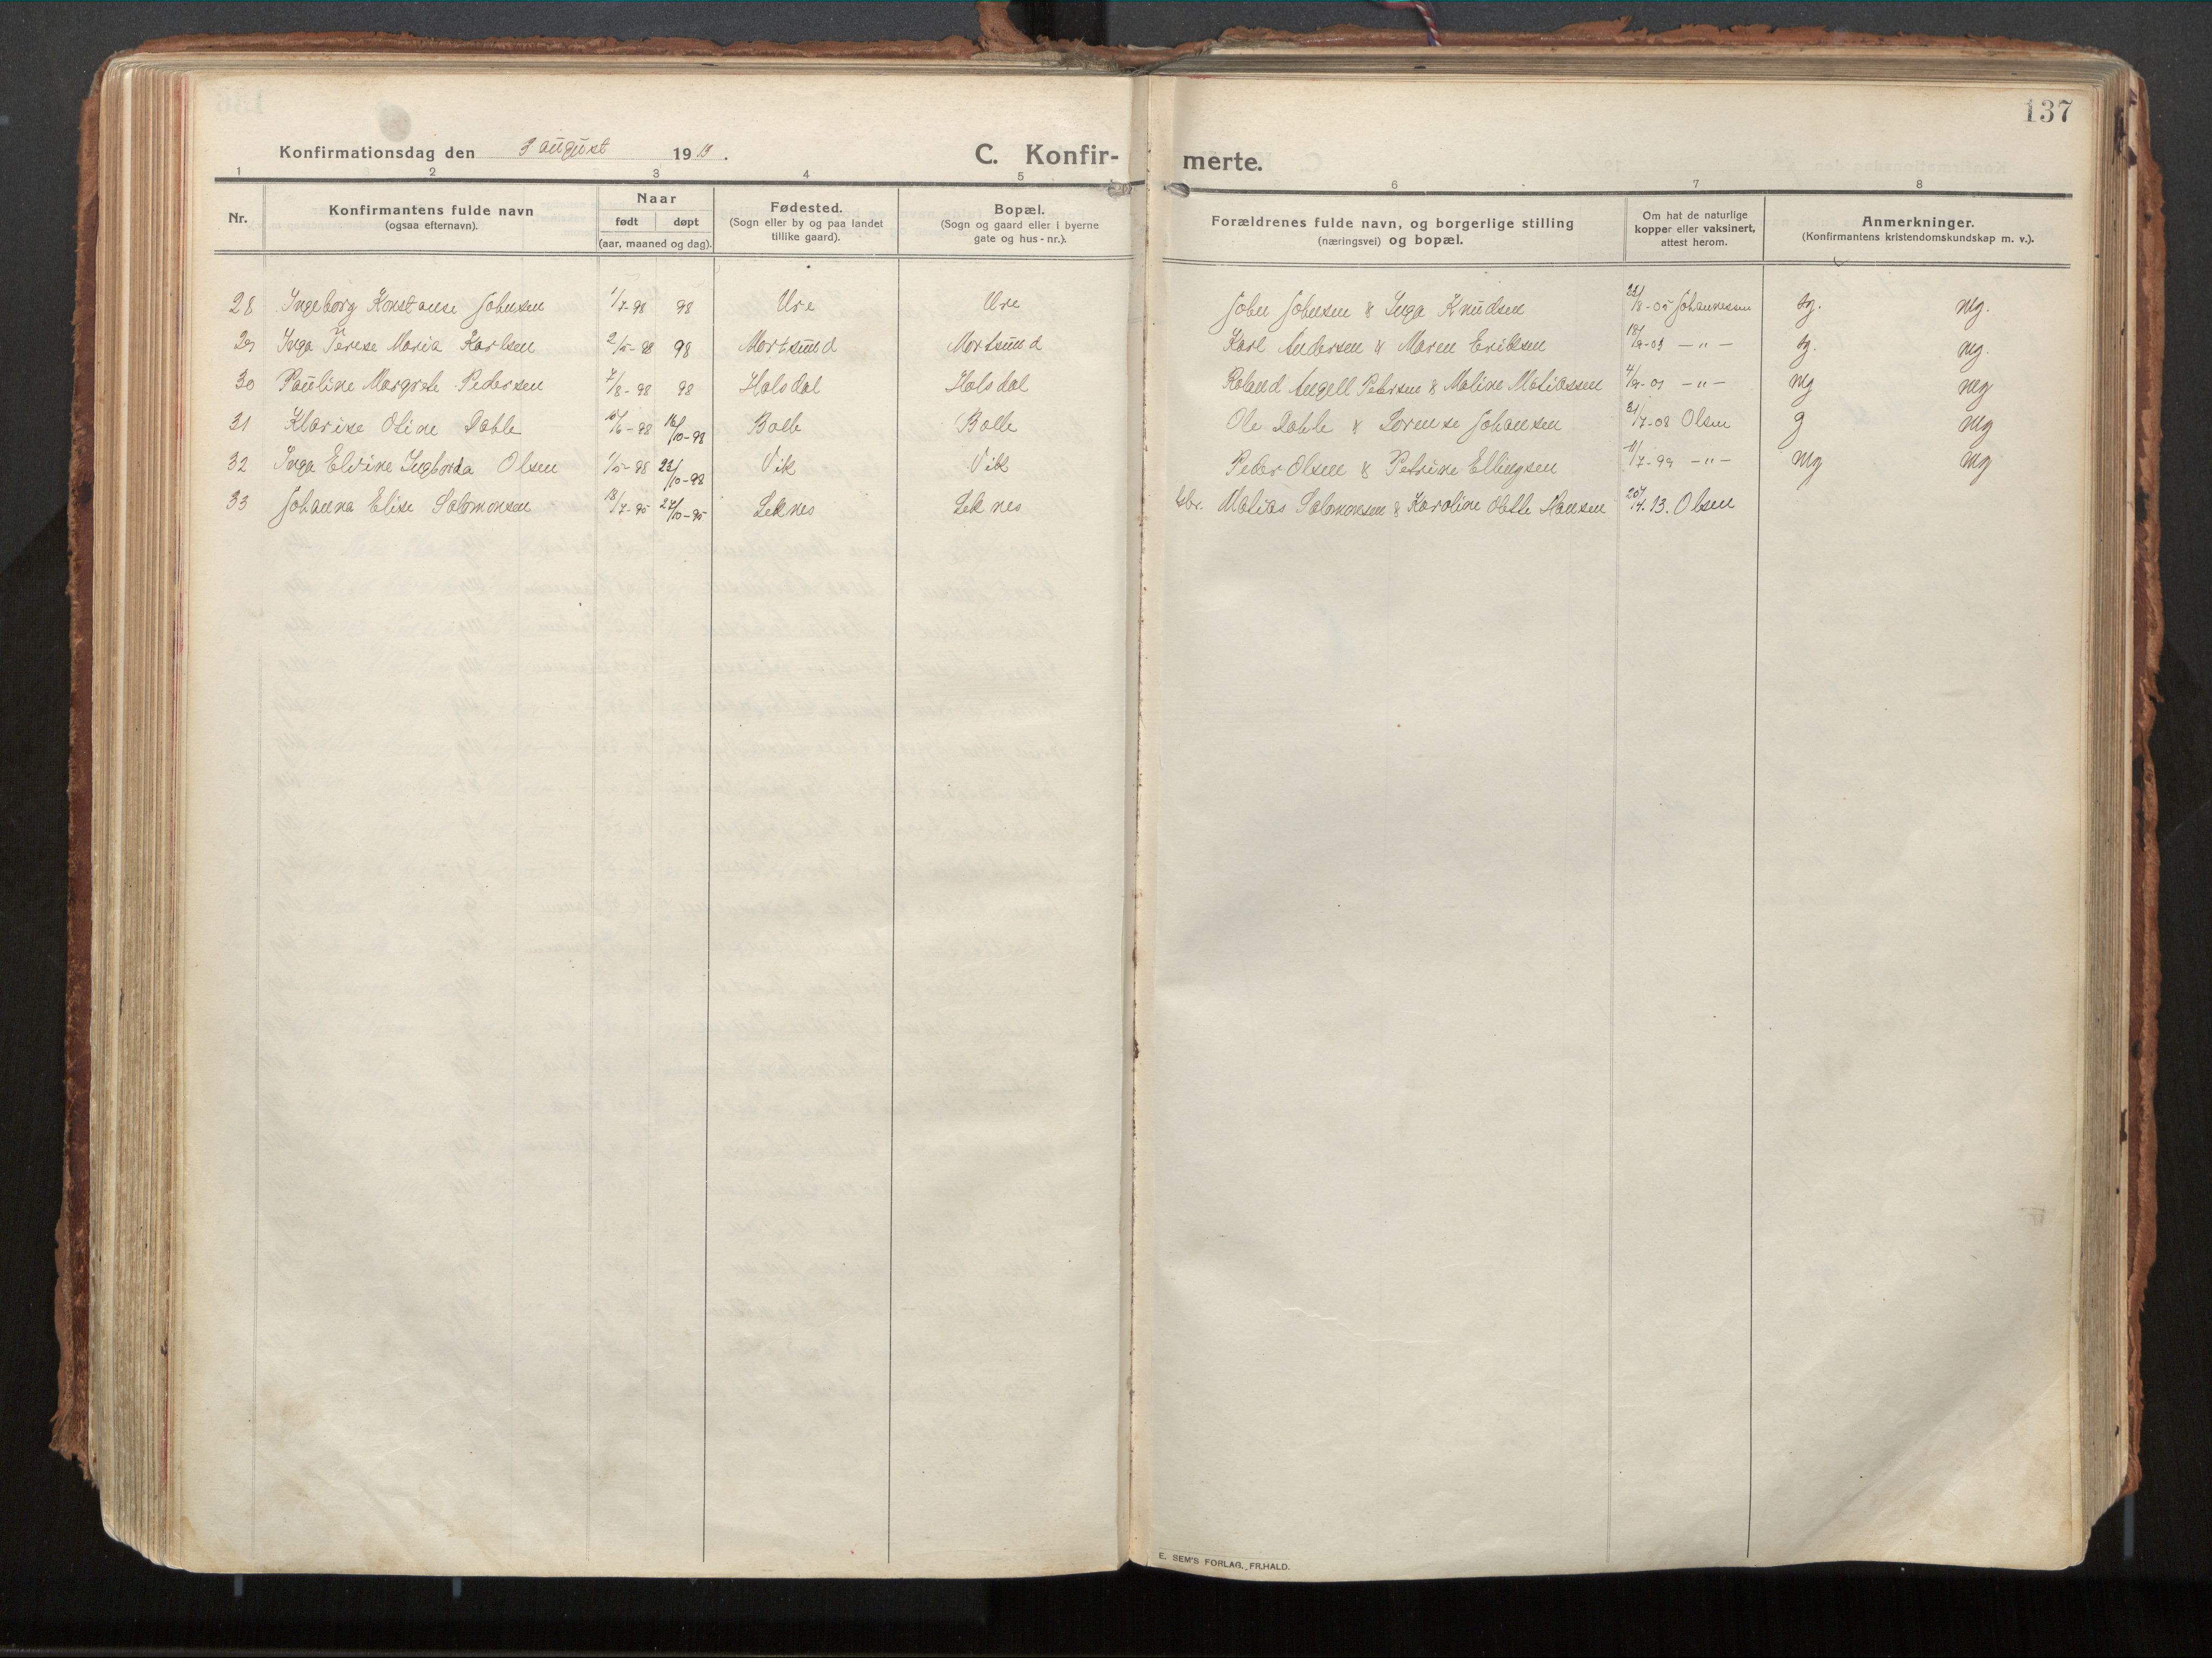 137
Konfirmationsdag den 3 august 1913.
C. Konfir-
merte.
1 2 3 4 5 6 7 8
Nr. Konfirmantens fulde navn (ogsaa efternavn). Naar født døpt (aar, maaned og dag). Fødested. (Sogn eller by og paa landet tillike gaard). Bopæl. (Sogn og gaard eller i byerne gate og hus-nr.). Forældrenes fulde navn, og borgerlige stilling (næringsvei) og bopæl. Om hat de naturlige kopper eller vaksinert, attest herom. Anmerkninger. (Konfirmantens kristendomskundskap m. v.).
28 Ingeborg Konstanse Johnsen 1/7-98 98 Ure Ure John Johnsen & Inga Knudsen /8-05 Johannessen tg. mg.
29 Inga Terese Maria Karlsen 2/5-98 98 Mortsund Mortsund Karl Andersen & Maren Eriksen 18/9-03 -"- tg. mg.
30 Pauline Margrete Pedersen 7/8-98 98 Holsdal Holsdal Roland Angell Petersen & Maline Matiassen 4/9-01 -"- mg mg
31 Klarine Oline Dahle 10/6-98 16/10-98 Bolle Bolle Ole Dahle & Lorense Johansen 31/7-08 Olsen g mg
32 Inga Elvine Ingborda Olsen 1/5-98 23/10-98 Vik Vik Peder Olsen & Petrine Ellingsen 11/7-99 -"- mg mg
33 Johanna Elise Salomonsen 18/7-95 27/10-95 Leknes Leknes Matias Salomonsen & Karoline Hansen 20/4.13. Olsen
E. SEM'S FORLAG, FR.HALD.